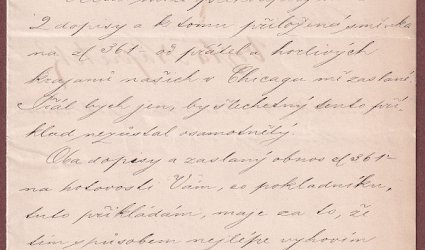 2 dopisy a k tomu přiložená směnka
na zl 361 - od přátel a horlivých
krajanů našich v Chicagu mě zaslané.
Přál bych jen, by šlechetný tento pří-
klad nezůstal osamotnělý.
Oba dopisy a zaslaný obnos zl 361 -
na hotovosti Vám, co pokladníku,
tuto přikládám, maje za to, že
tím spůsobem nejlépe vyhovím